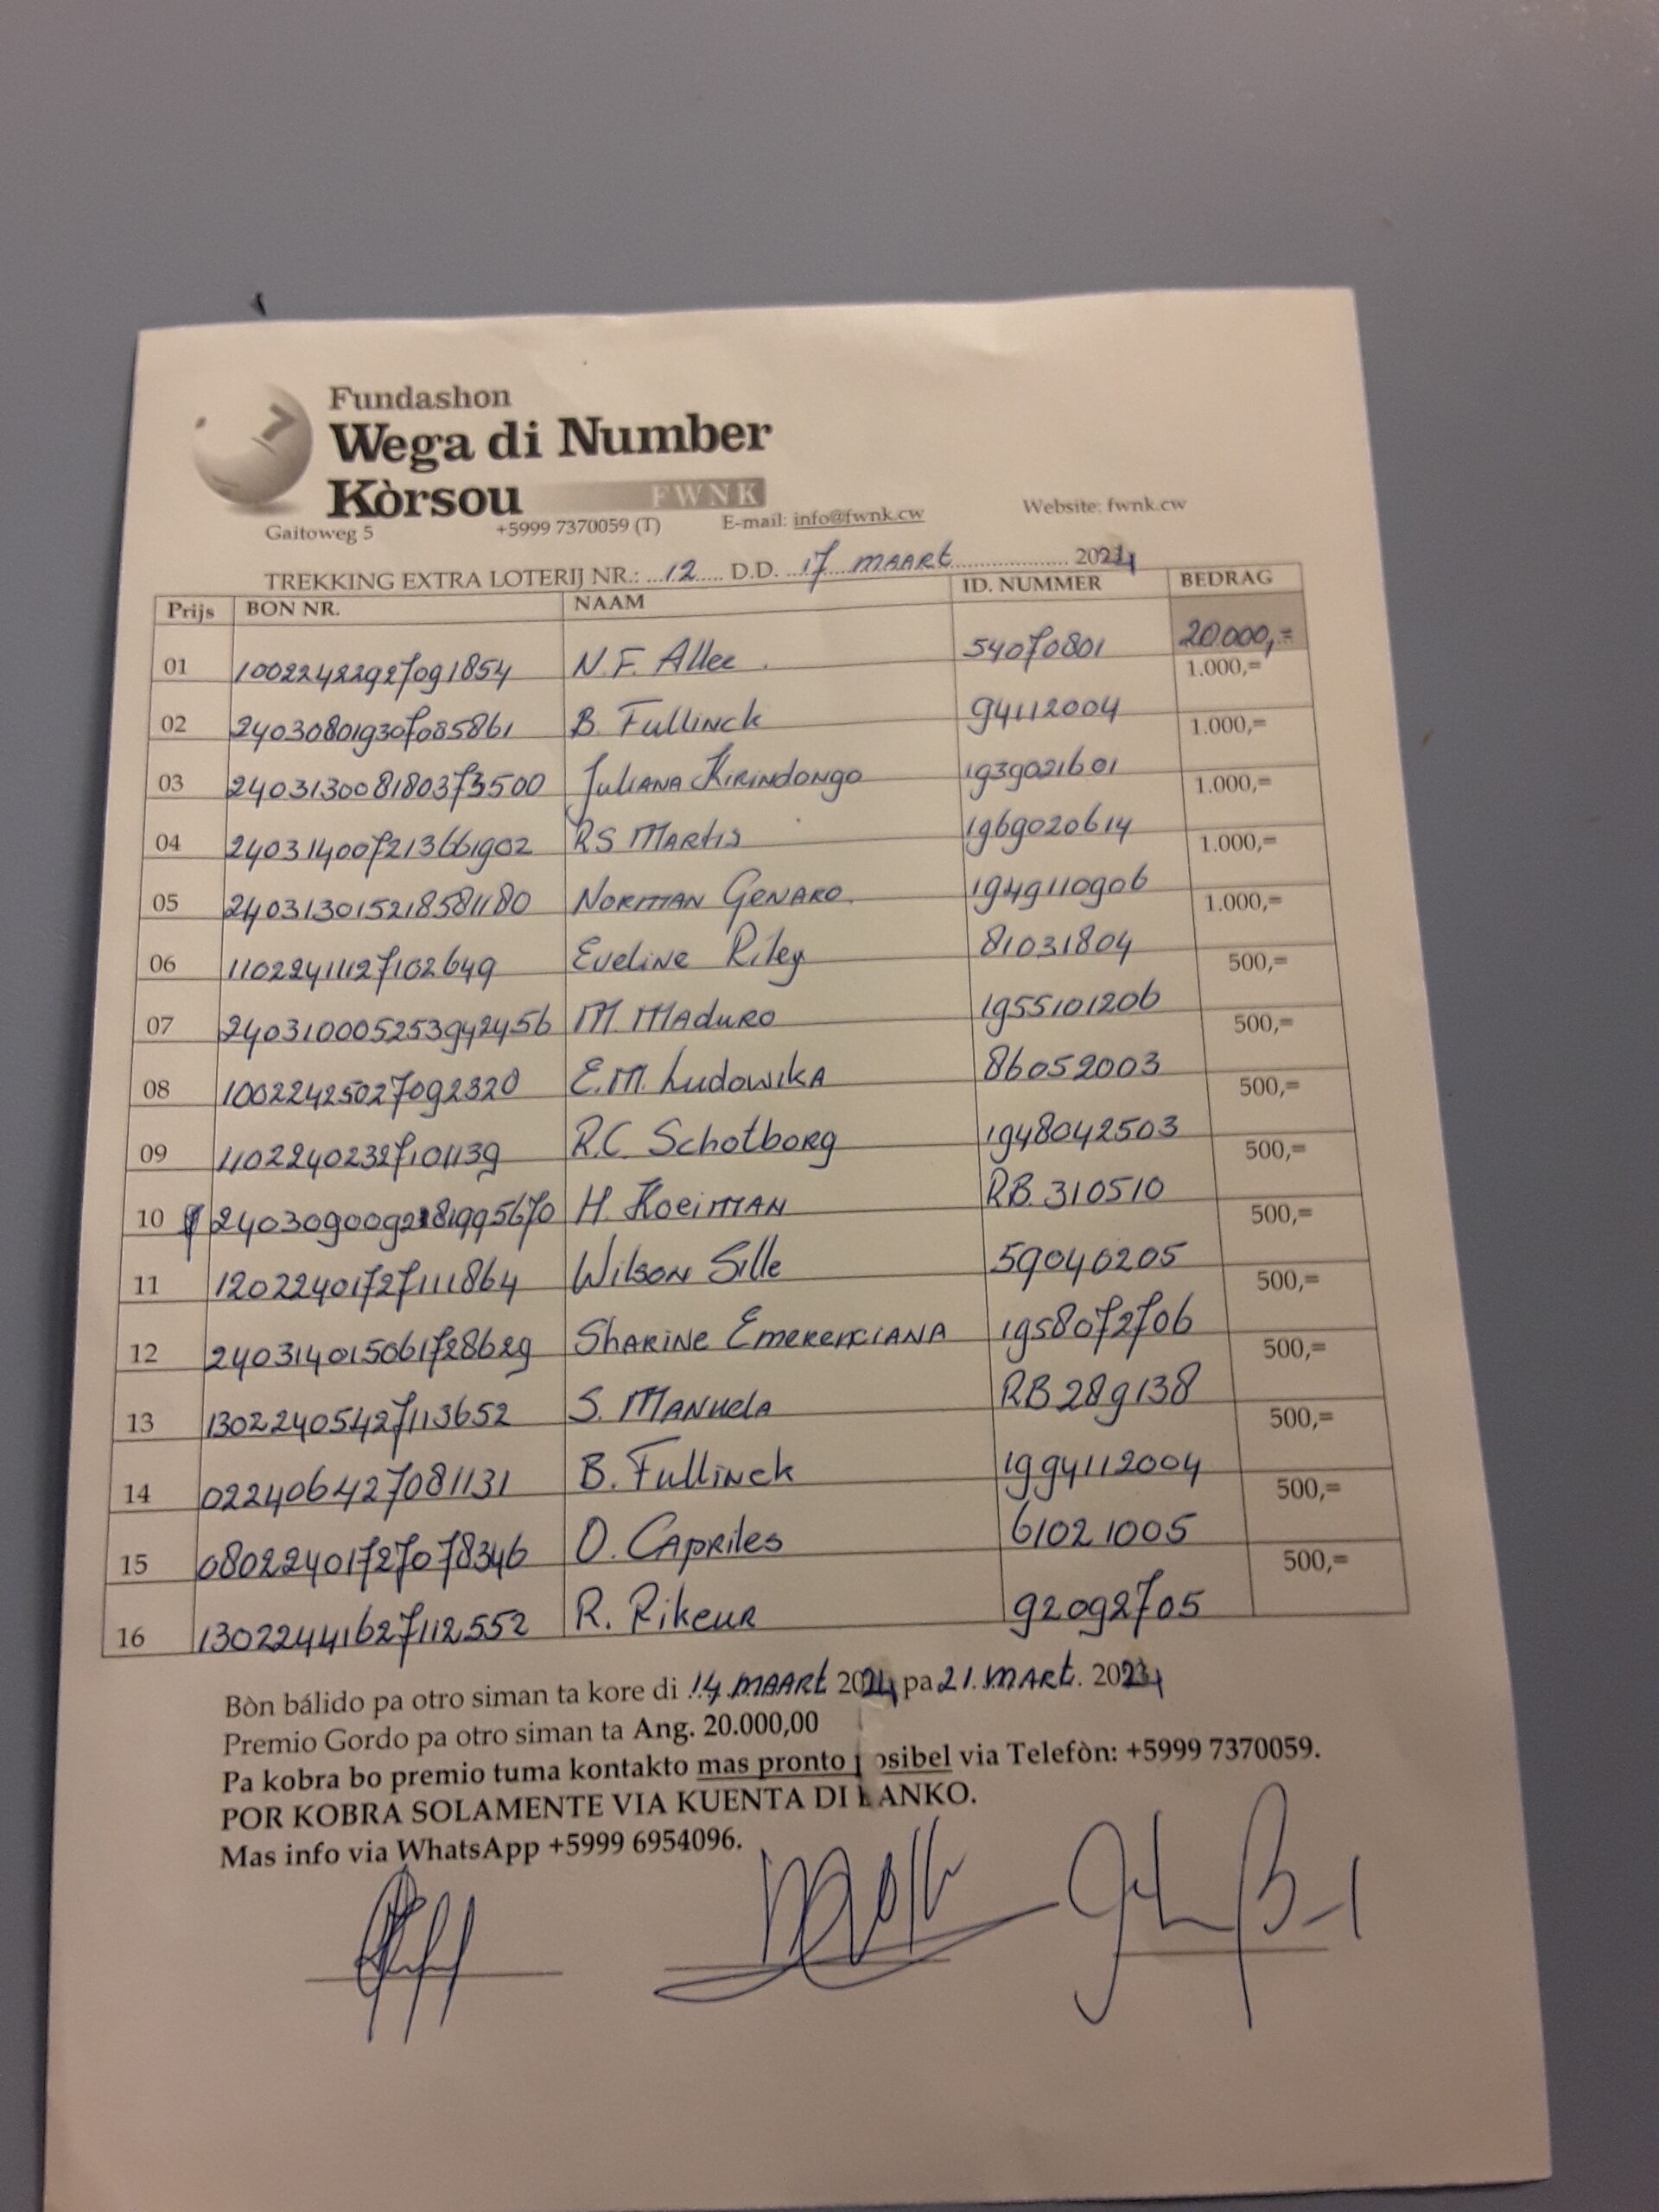 Fundashon
Wega di Number
Kòrsou FWNK
Gaitoweg 5 +5999 7370059 (T) E-mail: info@fwnk.cw Website: fwnk.cw
TREKKING EXTRA LOTERIJ NR.: 12 D.D. 17 MAART 2024
Prijs BON NR. NAAM ID. NUMMER BEDRAG
01 10022422927091854 N.F. Allee 54070801 20.000,=
02 240308019307085861 B. Fullinck 94112004 1.000,=
03 240313008180373500 Juliana Kirindongo 1939021601 1.000,=
04 240314007213661902 RS Martis 1969020614 1.000,=
05 240313015218581180 Norman Genaro. 1949110906 1.000,=
06 11022411127102649 Eveline Riley 81031804 1.000,=
07 240310005253942456 M. Maduro 1955101206 500,=
08 10022425027092320 E.M. Ludowika 86052003 500,=
09 11022402327101139 R.C. Schotborg 1948042503 500,=
10 H. Koeiman RB.310510 500,=
11 12022401727111864 Wilson Sille 59040205 500,=
12 240314015061728629 Sharine Emerenciana 1958072706 500,=
13 13022405427113652 S. Manuela RB289138 500,=
14 022406427081131 B. Fullinck 1994112004 500,=
15 08022401727078346 O. Capriles 61021005 500,=
16 13022441627112552 R. Rikeur 92092705 500,=
Bòn bálido pa otro siman ta kore di 14 MAART 2024 pa 21. MART. 2024
Premio Gordo pa otro siman ta Ang. 20.000,00
Pa kobra bo premio tuma kontakto mas pronto posibel via Telefòn: +5999 7370059.
POR KOBRA SOLAMENTE VIA KUENTA DI BANKO.
Mas info via WhatsApp +5999 6954096.